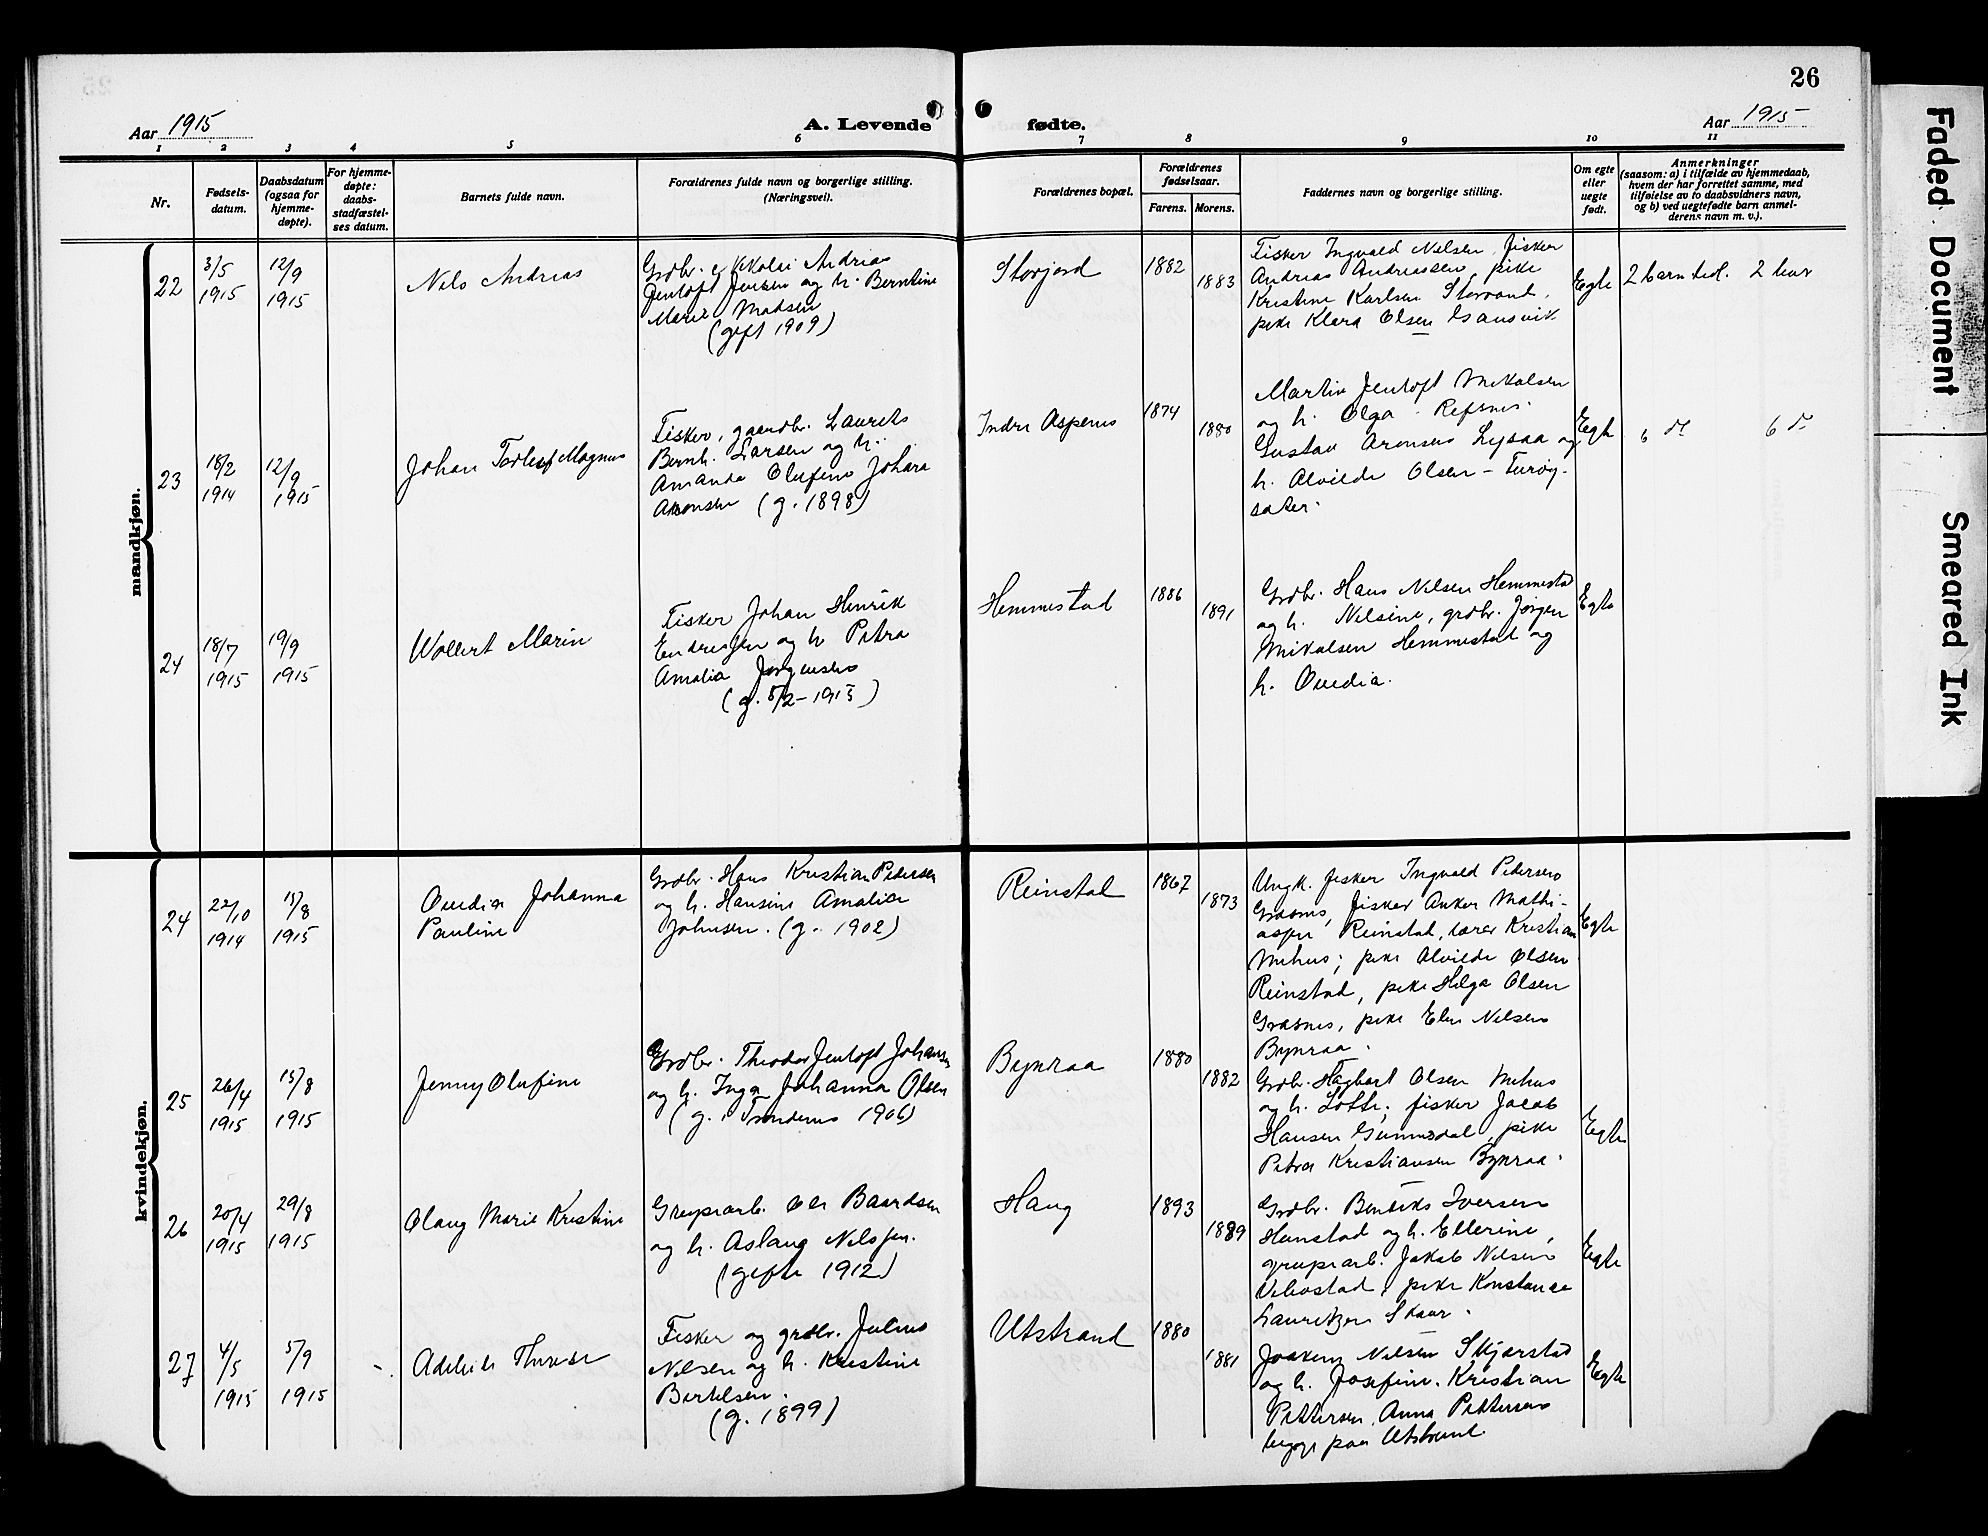 26
Aar 1915
A. Levende
fødte.
Aar 1915
1 2 3 4 5 6 7 8 9 10 11
Nr.
Fødsels-
datum.
Daabsdatum
(ogsaa for
hjemme-
døpte).
For hjemme-
døpte:
daabs-
stadfæstel-
ses datum.
Barnets fulde navn.
Forældrenes fulde navn og borgerlige stilling.
(Næringsvei).
Forældrenes bopæl.
Forældrenes
fødselsaar.
Farens. Morens.
Faddernes navn og borgerlige stilling.
Om egte
eller
uegte
født.
Anmerkninger
(saasom: a) i tilfælde av hjemmedaab,
hvem der har forrettet samme, med
tilføielse av to daabsvidners navn,
og b) ved uegtefødte barn anmel-
derens navn m. v.).
mandkjøn.
22
3/5
1915
12/9
1915
Nils Andreas
Grdbr. Nikolai Andreas
Jentoft Jensen og h. Berntine
Marie Madsen
(gift 1909)
Storjord
1882
1883
Fisker Ingvald Nilsen, fisker
Andreas Andreassen, pike
Kristine Karlsen Storvand,
pike Klara Olsen Gansvik
Egte
2 barn tidl. 2 lever
23
18/2
1914
12/9
1915
Johan Torleif Magnus
Fisker, gaardbr. Laurits
Bernh. Larsen og h.
Amanda Olufine Johara
Aronsen (g. 1898)
Indre Aspenes
1874
1880
Martin Jentoft Mikalsen
og h. Olga Refsnes.
Gustav Aronsen Lysaa og
h. Alvilde Olsen –
sæter.
Egte
6 do 6 do
24
18/7
1915
19/9
1915
Wollert Marin
Fisker Johan Henrik
Endresen og h. Petra
Amalia Jørgensen
(g. 5/2 – 1915)
Hemmestad
1886
1891
Grdbr. Hans Nilsen Hemmestad
og h. Nilsine, grdbr. Jørgen
Mikalsen Hemmestad og
h. Ovedia.
Egte
kvindekjøn.
24
22/10
1914
15/8
1915
Ovedia Johanna
Pauline
Grdbr. Hans Kristian Pedersen
og h. Hansine Amalia
Johnsen. (g. 1902)
Reinstad
1867
1873
Ungk. fisker Ingvald Pedersen
Grasnes, fisker Anker Mathi-
assen Reinstad, lærer Kristian
Mehus; pike Alvilde Olsen
Reinstad, pike Helga Olsen
Grasnes, pike Elen Nilsen
Bynraa.
Egte
25
26/4
1915
15/8
1915
Jenny Olufine
Grdbr. Theodor Jentoft Johansen
og h. Inga Johanna Olsen
(g. i Trondenes 1906)
Bynraa
1880
1882
Grdbr. Hagbart Olsen Mehus
og h. Lotte; fisker Jacob
Hansen Gummedal, pike
Petra Kristiansen Bynraa.
Egte
26
20/4
1915
29/8
1915
Olaug Marie Kristine
Grupearb. Ole Baardsen
og h. Aslaug Nilssen.
(gifte 1912)
Haug
1893
1889
Grdbr. Bendiks Iversen
Hanstad og h. Ellerine,
grupearb. Jakob Nilsen
Vebostad, pike Konstanse
Lauritzen Skaar.
Egte
27
4/5
1915
5/9
1915
Adelheide Therese
Fisker og grdbr. Julius
Nilsen og h. Kristine
Bertelsen.
(g. 1899)
Utstrand
1880
1881
Joakim Nilsen Skjærstad
og h. Josefine. Kristian
Pettersen, Anna Pettersen
begge paa Utstrand.
Egte
Faded Document
Smeared Ink